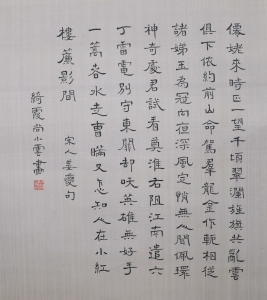 僊姥來時正一望千頃翠瀾旌旗共亂雲
俱下依約前山命駕羣龍金作軛相從
諸娣玉為冠向夜深風定悄無人聞佩環
神奇處君試看奠淮右阻江南遣六
丁雷電別守東關却笑英雄無好手
一篙春水走曹瞞又怎知人在小紅
樓簾影間 宋人姜夔句
綺霞尚小雲書